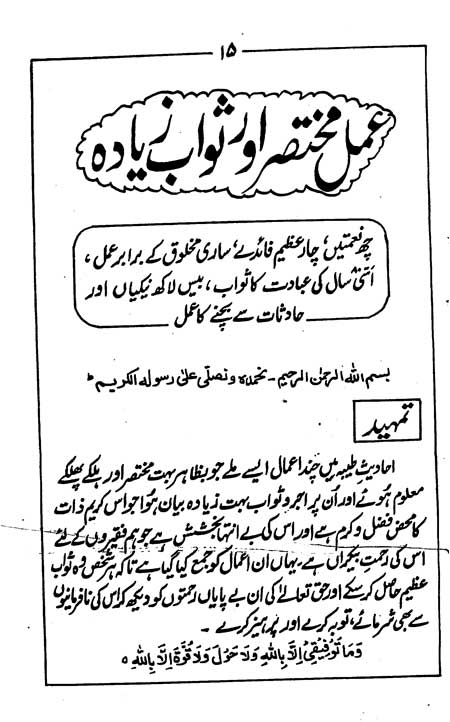 ۱۵
عمل مختصر اور ثواب زیادہ
چھ نعمتیں، چار عظیم فائدے، ساری مخلوق کے برابر عمل،
اَسّی سال کی عبادت کا ثواب، بیس لاکھ نیکیاں اور
حادثات سے بچنے کا عمل
بسم اللہ الرحمٰن الرحیم ۔ نحمدہ و نصلی علیٰ رسولہ الکریم ط
تمہید
احادیثِ طیبہ میں چند اعمال ایسے ملے جو بظاہر بہت مختصر اور ہلکے پھلکے
معلوم ہوئے اور اُن پر اجر و ثواب بہت زیادہ بیان ہوا جو اس کریم ذات
کا محض فضل و کرم ہے اور اس کی بے انتہا بخشش ہے جو ہم فقیروں کے لئے
اس کی رحمتِ بیکراں ہے۔ یہاں ان اعمال کو جمع کیا گیا ہے تاکہ ہر شخص وہ ثواب
عظیم حاصل کر سکے اور حق تعالےٰ کی ان بے پایاں رحمتوں کو دیکھ کر اس کی نافرمانیوں
سے بھی شرمائے، توبہ کرے اور پرہیز کرے ۔
وَمَا تَوْفِیْقِیْٓ اِلَّا بِاللّٰہِ وَلَا حَوْلَ وَلَا قُوَّۃَ اِلَّا بِاللّٰہِ ہ